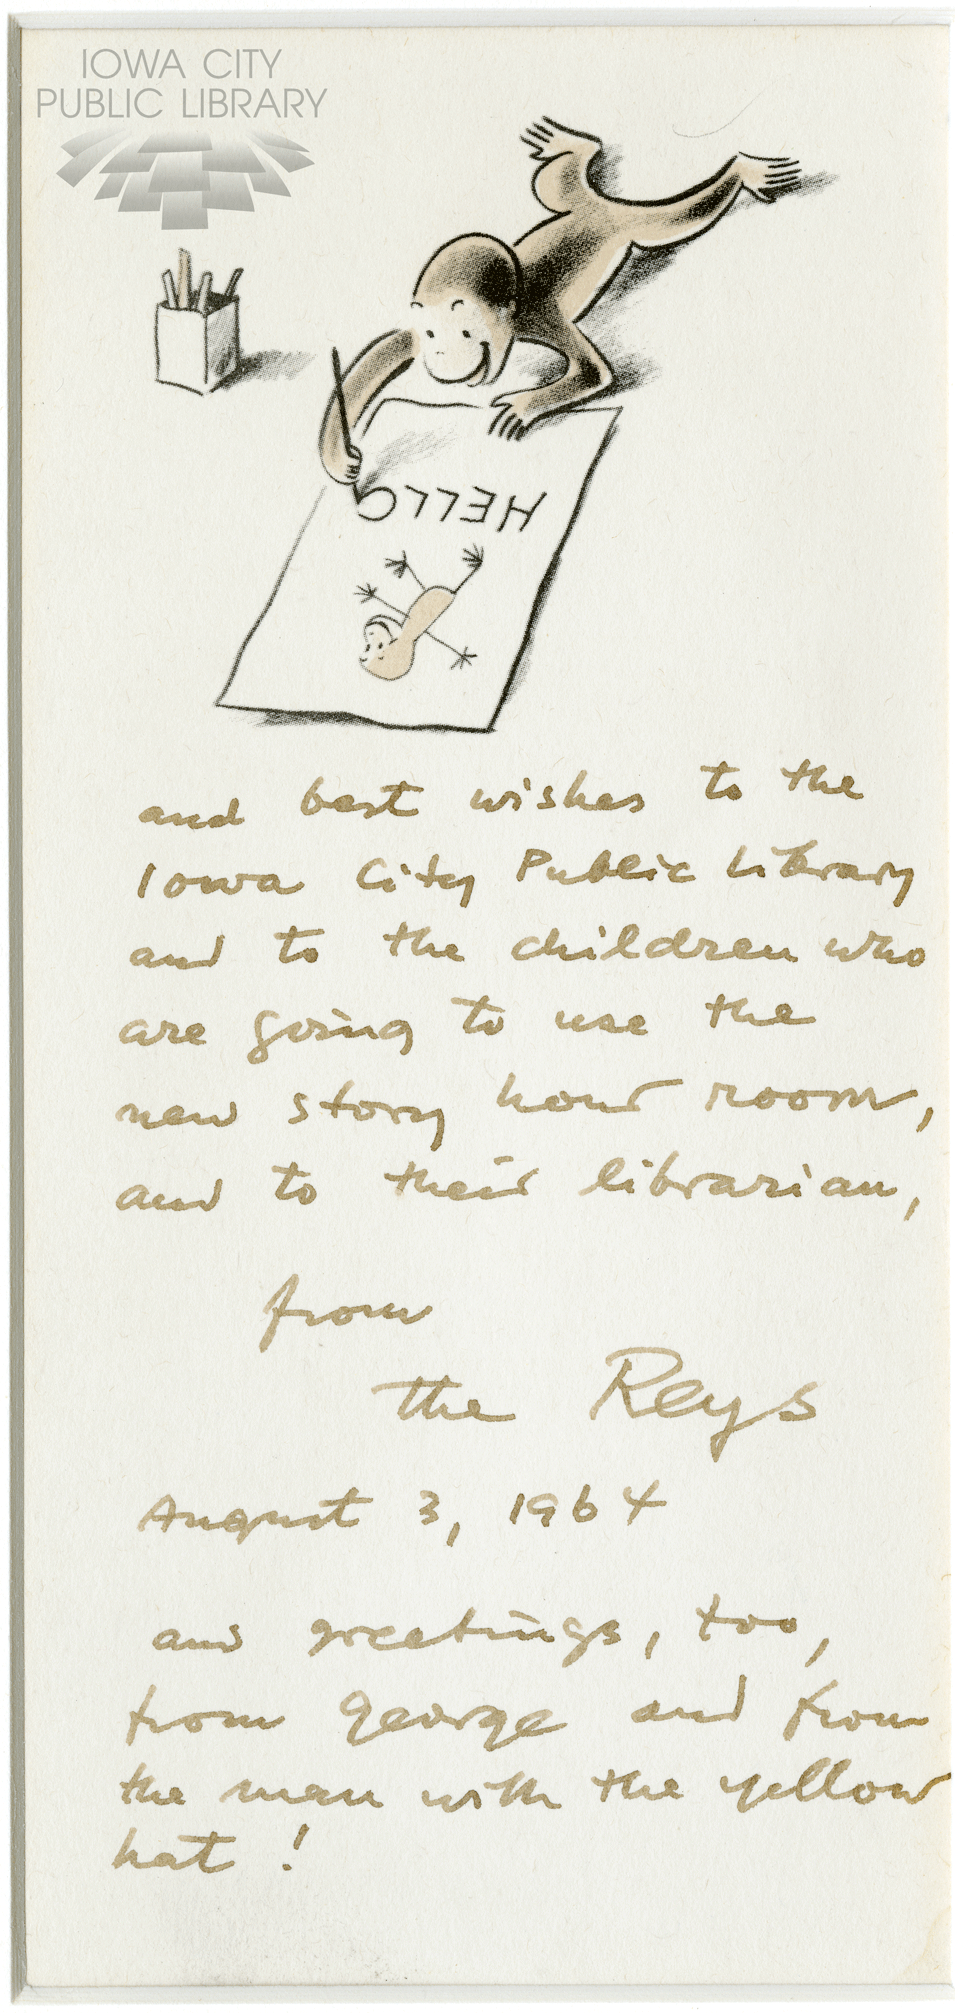 IOWA CITY
PUBLIC LIBRARY
HELLO
and best wishes to the
Iowa City Public Library
and to the children who
are going to use the
new story hour room,
and to their librarian,
from
the Reys
August 3, 1964
and greetings, too,
from George and from
the man with the yellow
hat !